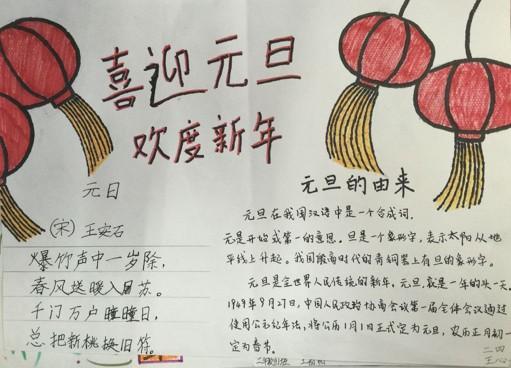 喜迎元旦
欢度新年
元日
(宋) 王安石
爆竹声中一岁除,
春风送暖入屠苏。
千门万户曈曈日,
总把新桃换旧符。
元旦的由来
元旦在我国汉语中是一个合成词.
元是开始或第一的意思.旦是一个象形字,表示太阳从地
平线上升起。我国殷商时代的青铜器上有旦的象形字。
元旦是全世界人民传统的新年,元旦,就是一年的头一天.
1949年9月27日,中国人民政治协商会议第一届全体会议通过
使用公元纪年法,将公历1月1日正式定为元旦,农历正月初一
定为春节。
二四